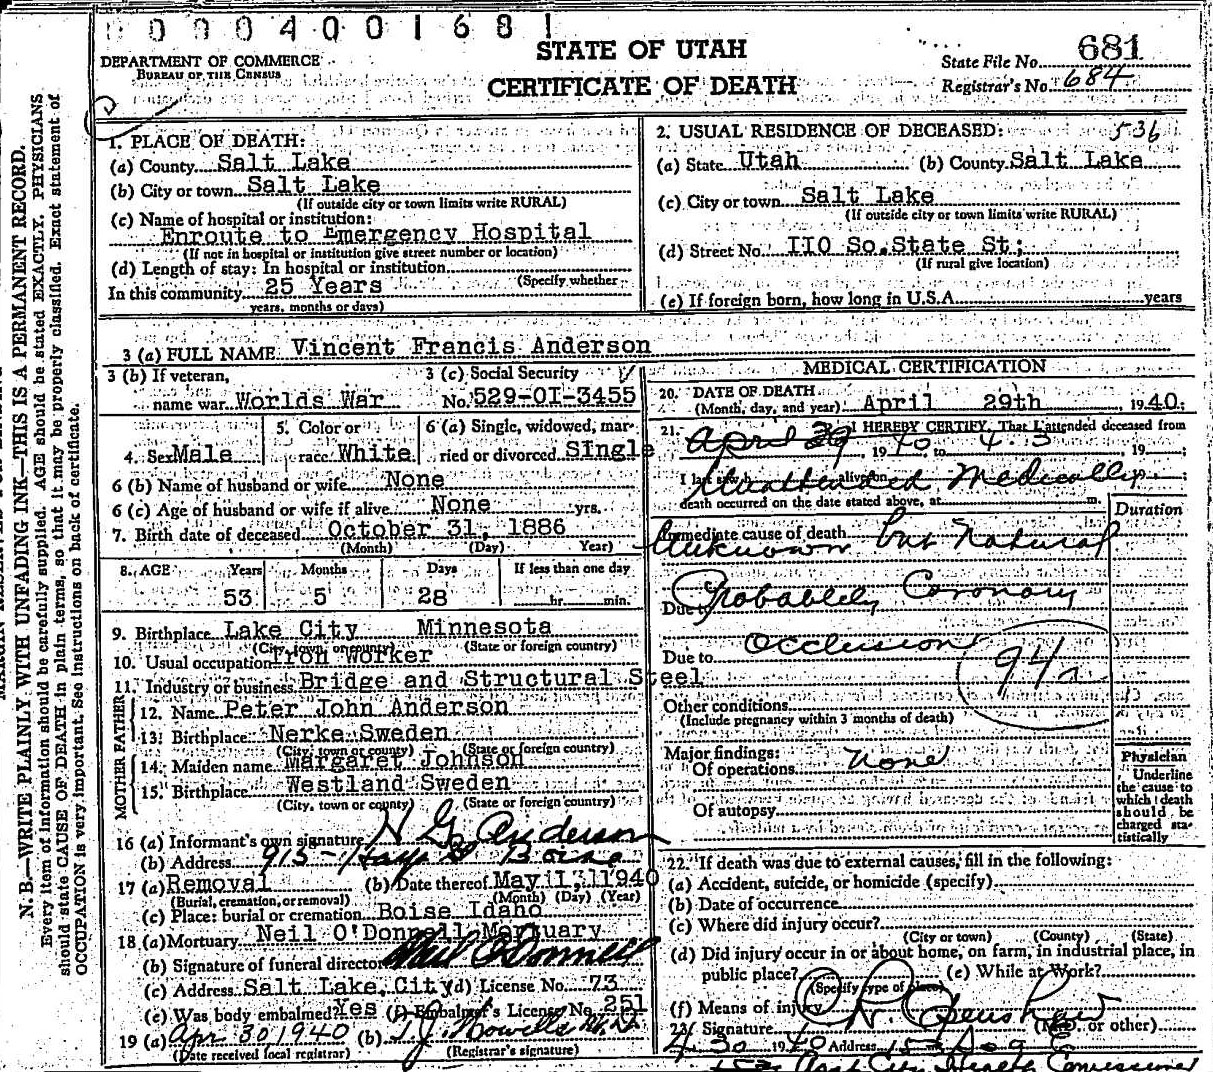 0 0 0 4 0 0 1 6 8 1
DEPARTMENT OF COMMERCE
BUREAU OF THE CENSUS
STATE OF UTAH
CERTIFICATE OF DEATH
State File No. 681
Registrar's No. 684
N. B.—WRITE PLAINLY WITH UNFADING INK—THIS IS A PERMANENT RECORD.
Every item of information should be carefully supplied. AGE should be stated EXACTLY. PHYSICIANS
should state CAUSE OF DEATH in plain terms, so that it may be properly classified. Exact statement of
OCCUPATION is very important. See instructions on back of certificate.
1. PLACE OF DEATH:
(a) County Salt Lake
(b) City or town Salt Lake
(If outside city or town limits write RURAL)
(c) Name of hospital or institution:
Enroute to Emergency Hospital
(If not in hospital or institution give street number or location)
(d) Length of stay: In hospital or institution
(Specify whether
In this community 25 Years
years, months or days)
2. USUAL RESIDENCE OF DECEASED: 536
(a) State Utah (b) County Salt Lake
(c) City or town Salt Lake
(If outside city or town limits write RURAL)
(d) Street No. IIO So.State St;
(If rural give location)
(e) If foreign born, how long in U.S.A. years
3 (a) FULL NAME Vincent Francis Anderson
3 (b) If veteran, 3 (c) Social Security
name war Worlds War No. 529-OI-3455
4. Sex Male 5. Color or race White 6 (a) Single, widowed, married or divorced SIngle
6 (b) Name of husband or wife None
6 (c) Age of husband or wife if alive None yrs.
7. Birth date of deceased October 31, 1886
(Month) (Day) Year)
8. AGE Years Months Days If less than one day
53 5 28 hr. min.
9. Birthplace Lake City Minnesota
(City, town, or county) (State or foreign country)
10. Usual occupation Iron Worker
11. Industry or business Bridge and Structural Steel
FATHER
12. Name Peter John Anderson
13. Birthplace Nerke Sweden
(City, town or county) (State or foreign country)
MOTHER
14. Maiden name Margaret Johnson
15. Birthplace Westland Sweden
(City, town or county) (State or foreign country)
16 (a) Informant's own signature H G Anderson
(b) Address 915 - Hays St Boise
17 (a) Removal (b) Date thereof May 1, 1940
(Burial, cremation, or removal) (Month) (Day) (Year)
(c) Place: burial or cremation Boise Idaho
18 (a) Mortuary Neil O'Donnell Mortuary
(b) Signature of funeral director Neil O'Donnell
(c) Address Salt Lake City (d) License No. 73
(e) Was body embalmed? Yes (f) Embalmer's License No. 251
19 (a) Apr 30, 1940 (b) T. J. Howells M.D.
(Date received local registrar) (Registrar's signature)
MEDICAL CERTIFICATION
20. DATE OF DEATH
(Month, day, and year) April 29th, 1940;
21. I HEREBY CERTIFY, That I attended deceased from
April 29 1940 to , 19 ;
I last saw h alive on Unattended Medically 19
death occurred on the date stated above, at m.
Duration
Immediate cause of death
Unknown but Natural
Due to Probablely Coronary
Due to Occlusion
94a
Other conditions
(Include pregnancy within 3 months of death)
Major findings:
Of operations None
Of autopsy
Physician
Underline
the cause to
which death
should be
charged sta-
tistically
22. If death was due to external causes, fill in the following:
(a) Accident, suicide, or homicide (specify)
(b) Date of occurrence
(c) Where did injury occur?
(City or town) (County) (State)
(d) Did injury occur in or about home, on farm, in industrial place, in
public place? (e) While at Work?
(Specify type of place)
(f) Means of injury
23. Signature (M.D. or other)
4 30 1940 Address
Asst City Health Commissioner